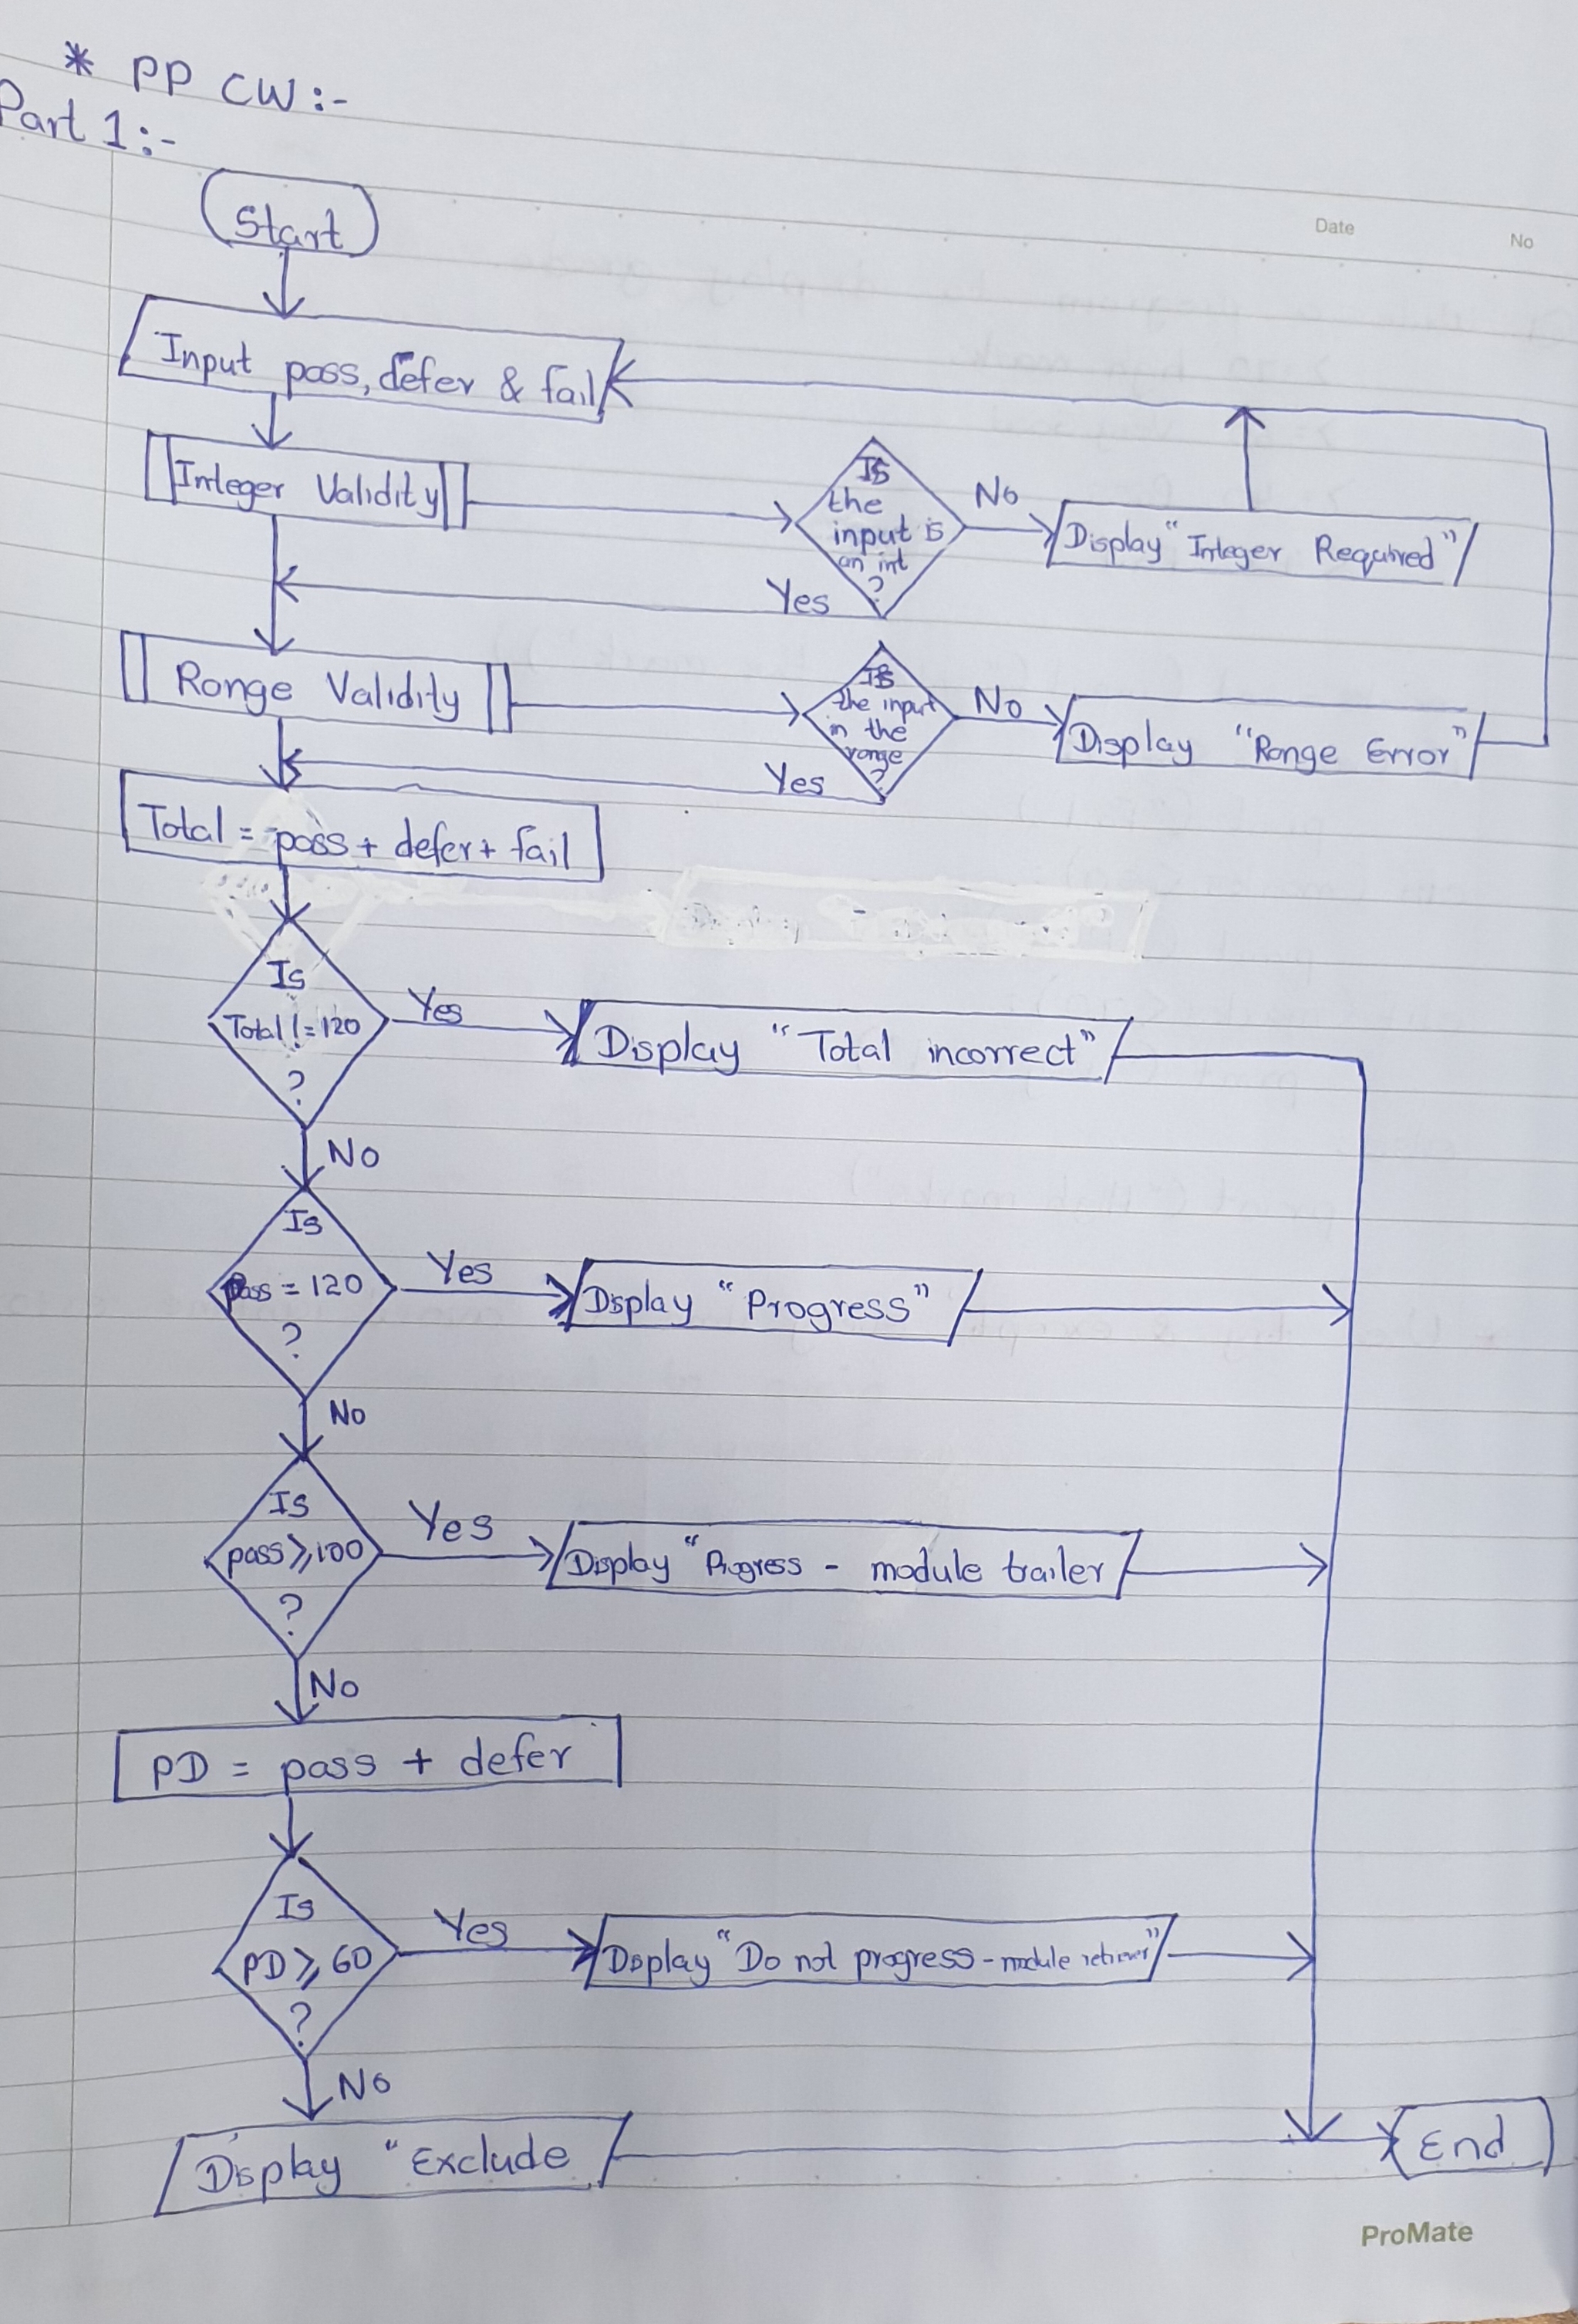 * PP CW:-
Part 1:-
Date
No
Start
Input pass, defer & fail
Integer Validity
Is
the
input is
an int
?
No
Display "Integer Required"
Yes
Range Validity
Is
the input
in the
range
?
No
Display "Range Error"
Yes
Total = pass + defer + fail
Is
Total != 120
?
Yes
Display "Total incorrect"
No
Is
Pass = 120
?
Yes
Display "Progress"
No
Is
pass ≥ 100
?
Yes
Display "Progress - module trailer
No
PD = pass + defer
Is
PD ≥ 60
?
Yes
Display "Do not progress - module retriever"
No
Display "Exclude
End
ProMate